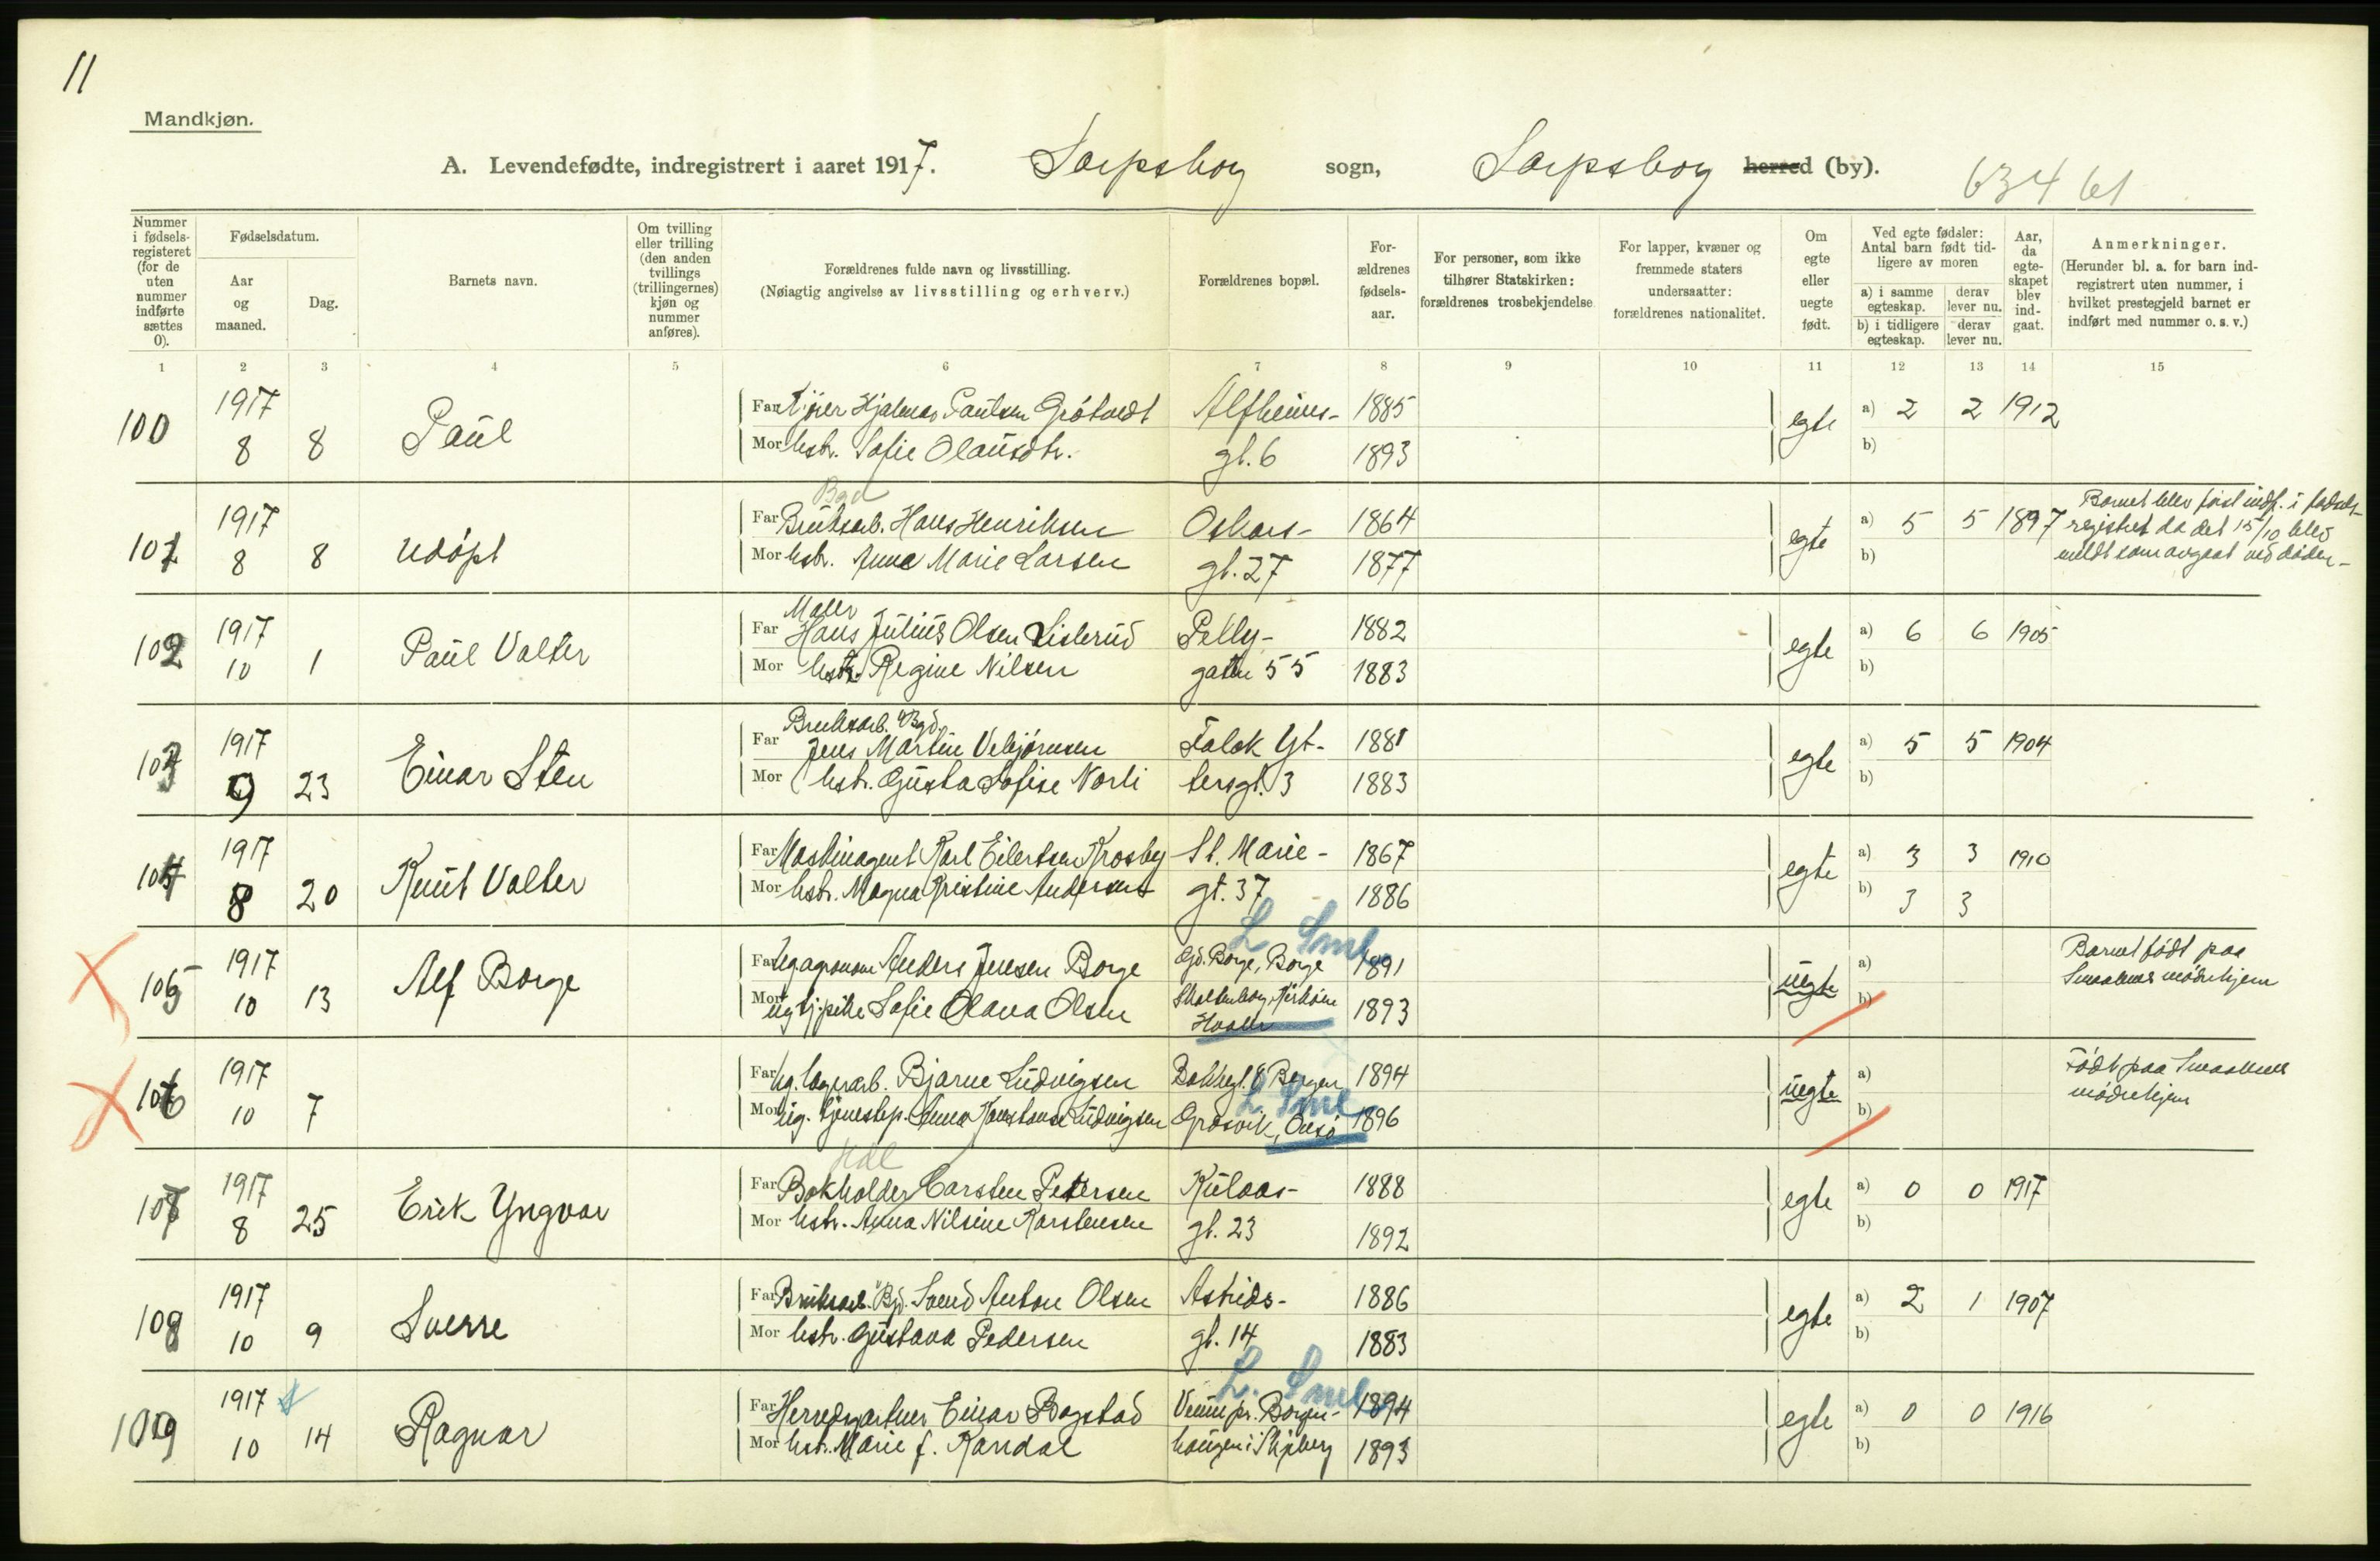 11
Mandkjøn.
A. Levendefødte, indregistrert i aaret 1917. Sarpsborg sogn, Sarpsborg herred (by). 634 61
Nummer i fødsels-registeret (for de uten nummer indførte sættes 0).
Fødselsdatum.
Aar og maaned.
Dag.
Barnets navn.
Om tvilling eller trilling (den anden tvillings (trillingernes) kjøn og nummer anføres).
Forældrenes fulde navn og livsstilling.
(Nøiagtig angivelse av livsstilling og erhverv.)
Forældrenes bopæl.
For-ældrenes fødsels-aar.
For personer, som ikke tilhører Statskirken: forældrenes trosbekjendelse
For lapper, kvæner og fremmede staters undersaatter: forældrenes nationalitet.
Om egte eller uegte født.
Ved egte fødsler: Antal barn født tid-ligere av moren
a) i samme egteskap.
derav lever nu.
b) i tidligere egteskap.
derav lever nu.
Aar, da egte-skapet blev ind-gaat.
Anmerkninger.
(Herunder bl. a. for barn ind-registrert uten nummer, i hvilket prestegjeld barnet er indført med nummer o. s. v.)
1 2 3 4 5 6 7 8 9 10 11 12 13 14 15
100 1917 8 8 Paul
Far Hjalmar Paulsen Grötvedt Alfheims- 1885 egte a) 2 2 1912
Mor hstr. Sofie Olausdtr. gt. 6 1893 b)
Bgd
101 1917 8 8 udöpt
Far Bruksarb. Hans Henriksen Oskars- 1864 egte a) 5 5 1897
Mor hstr. Anna Marie Larsen gt. 27 1877 b)
Barnet blev først indf. i fødsels-
registret da det 15/10 blev
meldt som avgaat ved döden-
Maler
102 1917 10 1 Paul Valter
Far Hans Julius Olsen Listerud Pelly- 1882 egte a) 6 6 1905
Mor hstr. Regine Nilsen gaten 55 1883 b)
Bruksarb. Bgd.
103 1917 9 23 Einar Sten
Far Jens Martin Vebjörnsen Falck Yt- 1881 egte a) 5 5 1904
Mor hstr. Gusta Sofise Norli tersgt. 3 1883 b)
104 1917 8 20 Knut Valter
Far Maskinagent Karl Eilertsen Krosby St. Marie- 1867 egte a) 3 3 1910
Mor hstr. Magna Kristine Andersen gt. 37 1886 b) 3 3
L. Sml.
105 1917 10 13 Alf Borge
Far ug agronom Anders Jensen Borge Gd. Borge, Borge 1891 uegte a)
Mor ug tj.pike Sofie Olava Olsen Kirköen Hvaler 1893 b)
Barnet födt paa
Smaalenes mödrehjem
106 1917 10 7
Far ug. lagerarb. Bjarne Ludvigsen Bergen 1894 uegte a)
L. Sml
Mor ug. tjenestep. Anna Konstanse Ludvigsen Græsvik, Onsö 1896 b)
Födt paa Smaalenes
mödrehjem
Hdl
107 1917 8 25 Erik Yngvar
Far Bokholder Carsten Petersen Kulaas- 1888 egte a) 0 0 1917
Mor hstr. Anna Nilsine Karstensen gt. 23 1892 b)
108 1917 10 9 Sverre
Far Bruksarb. Bgd. Svend Anton Olsen Astrids- 1886 egte a) 2 1 1907
Mor hstr. Gustava Pedersen gt. 14 1883 b)
L. Sml.
109 1917 10 14 Ragnar
Far Herredgartner Einar Bogstad Vennepr. Borgen- 1894 egte a) 0 0 1916
Mor hstr. Marie f. Kandal haugen i Skjeberg 1893 b)